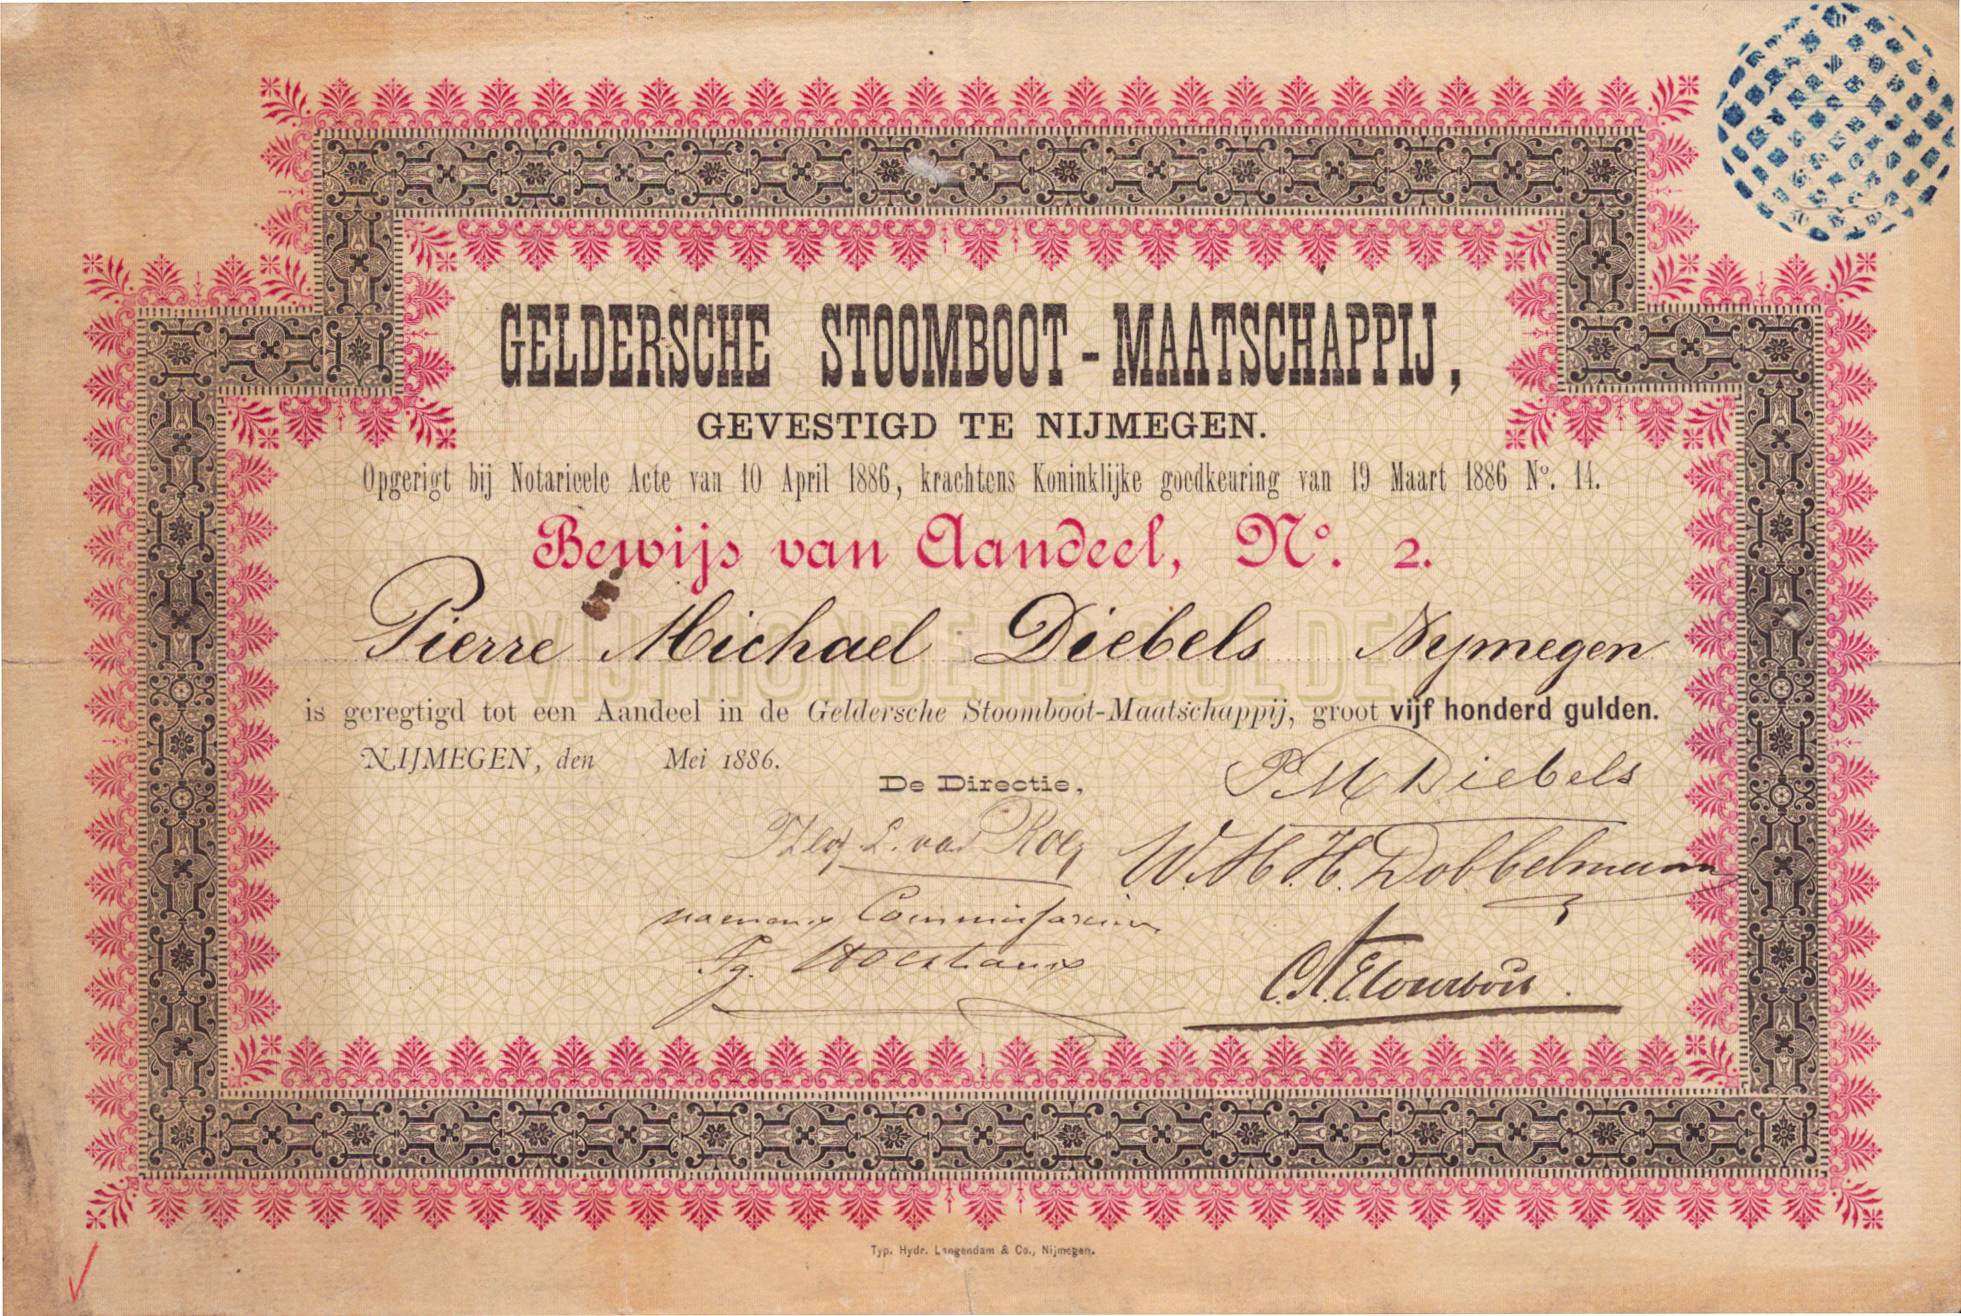 GELDERSCHE STOOMBOOT-MAATSCHAPPIJ,
GEVESTIGD TE NIJMEGEN.
Opgerigt bij Notarieele Acte van 10 April 1886, krachtens Koninklijke goedkeuring van 19 Maart 1886 No. 14.
Bewijs van Aandeel, No. 2.
VIJFHONDERD GULDEN
Pierre Michael Diebels Nymegen
is geregtigd tot een Aandeel in de Geldersche Stoomboot-Maatschappij, groot vijf honderd gulden.
NIJMEGEN, den Mei 1886.
De Directie,
P M Diebels
W. H. Dobbelmann
Commissarissen
Typ. Hydr. Langendam & Co., Nijmegen.